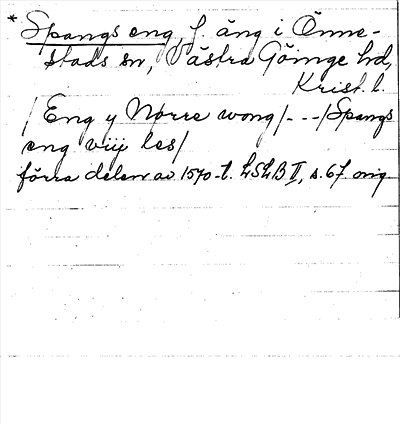 * Spangs eng, f. äng i Önne-
stads sn, Västra Göinge hd,
Krist. l.
/Eng y Nørre wong/---/Spangs
eng viij les/
förra delen av 1570-t. LSLB II, s. 67 orig